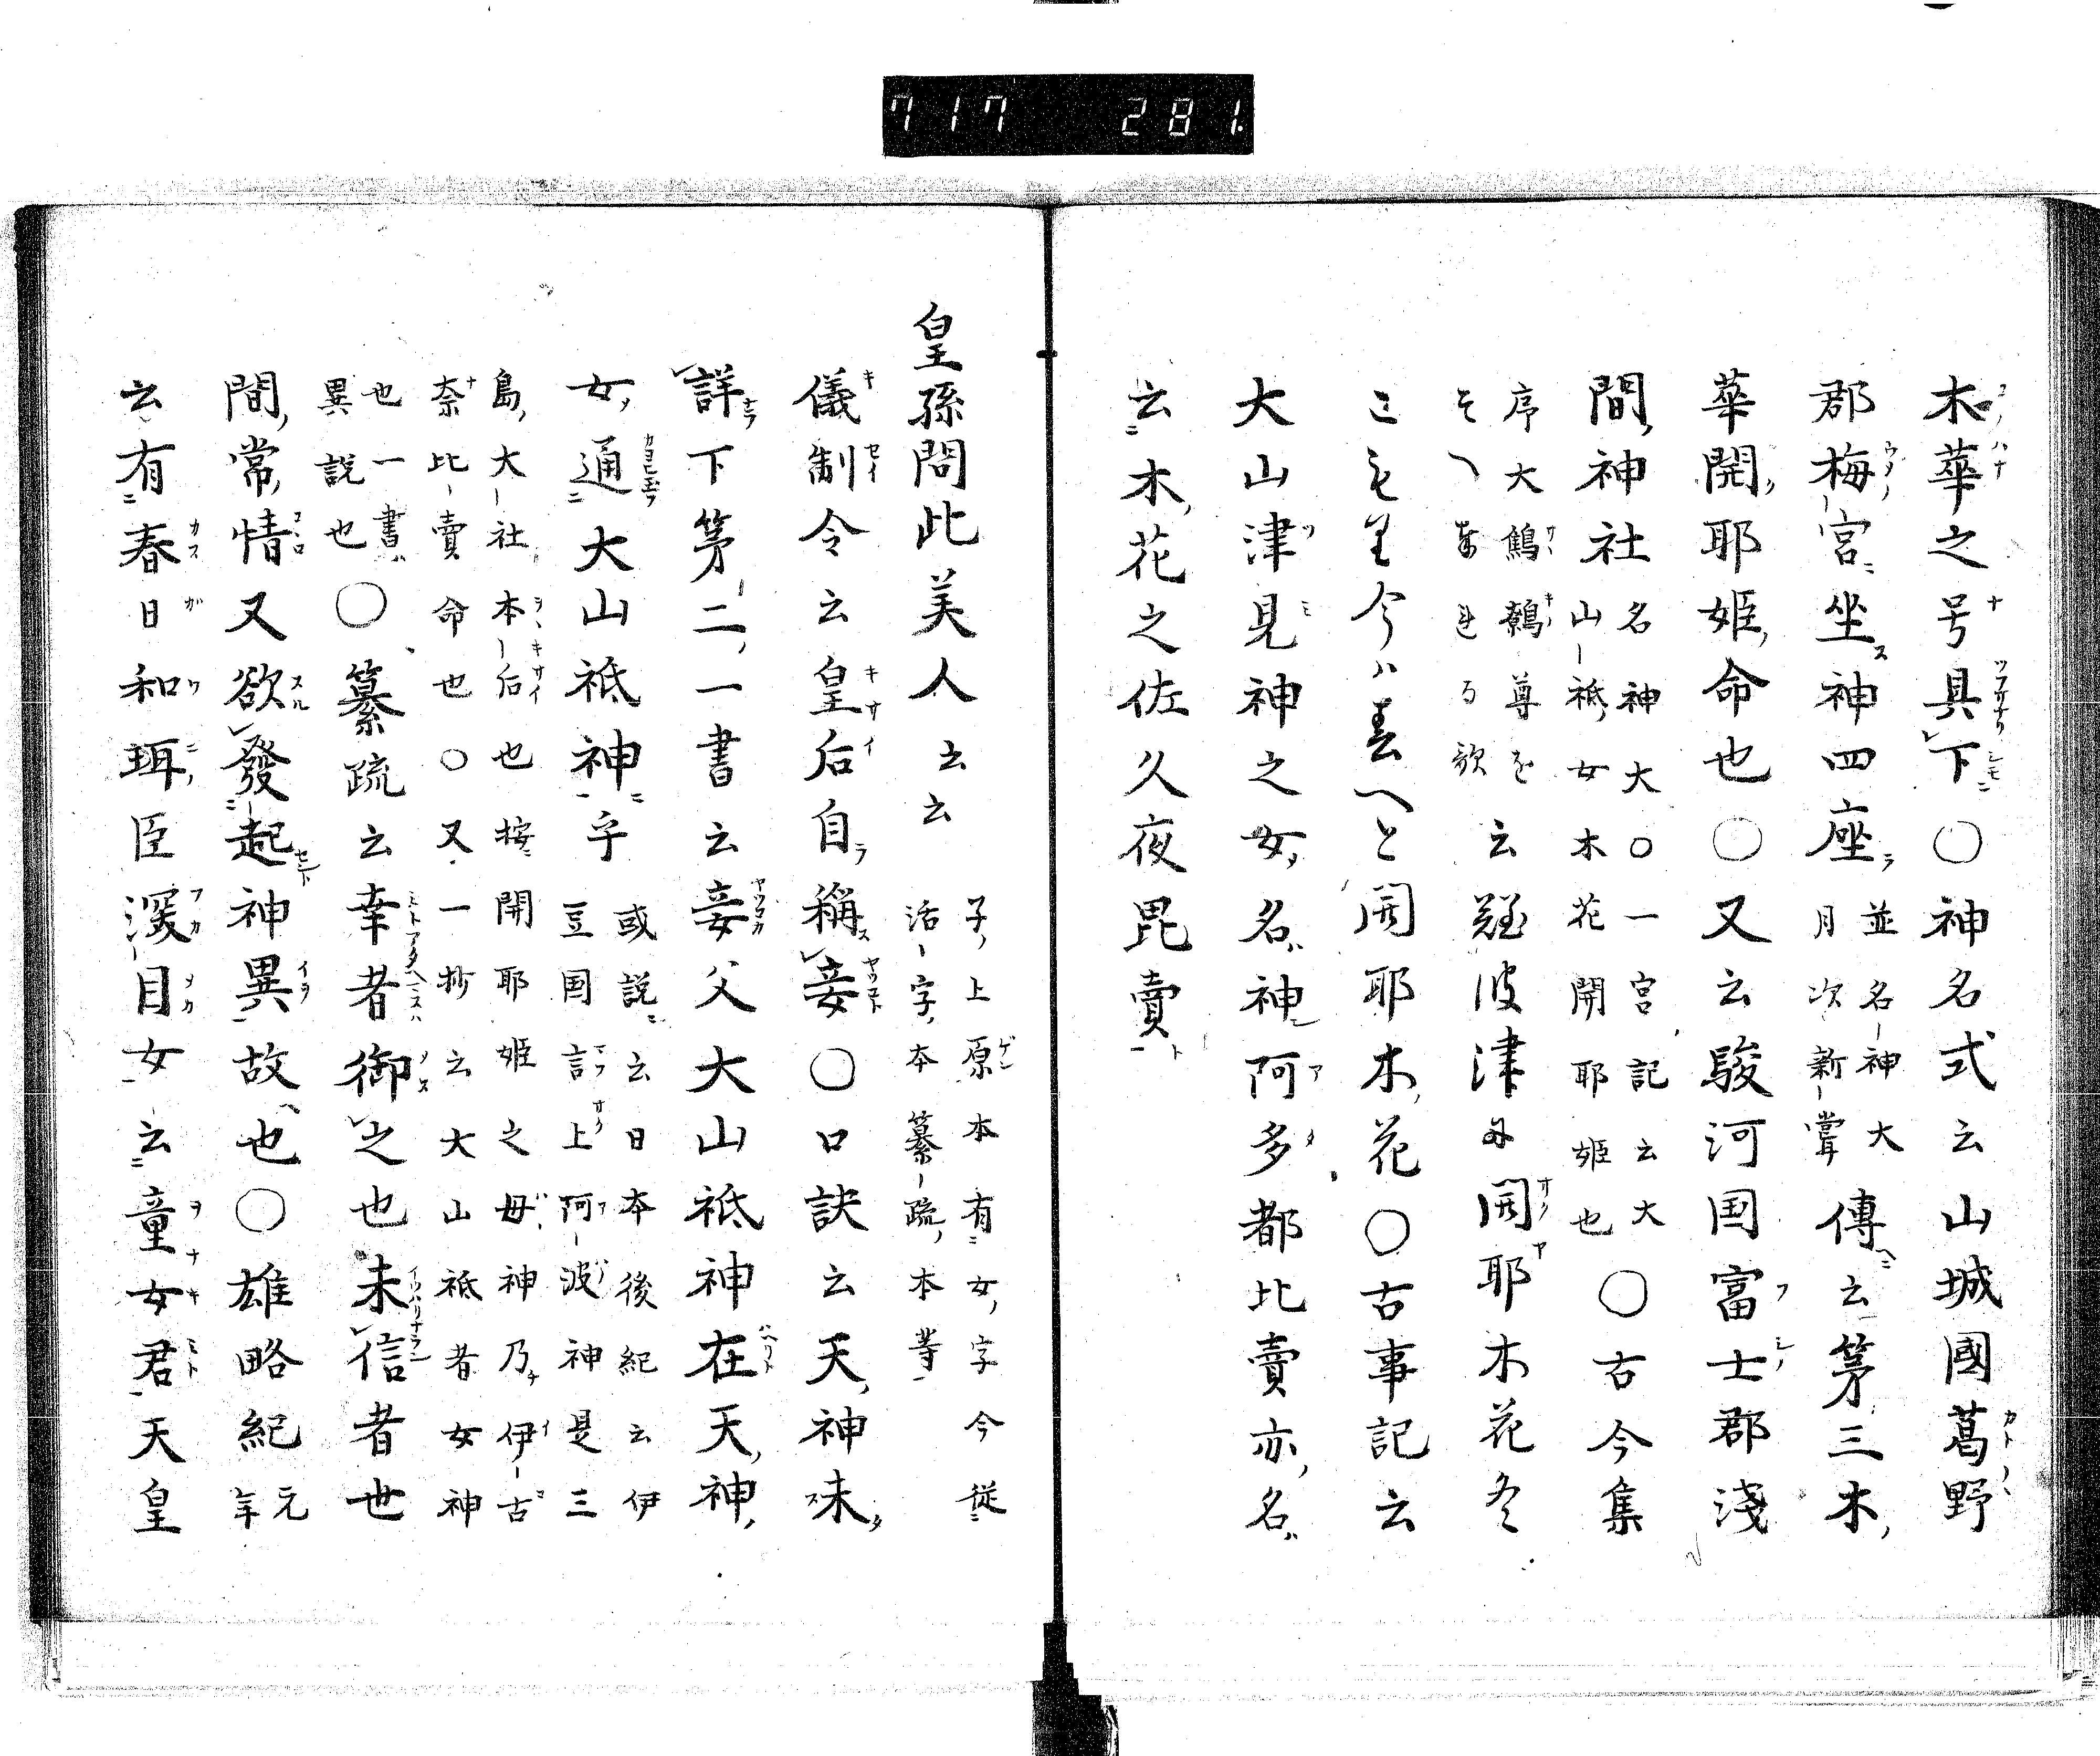 717 281
木華之号具下〇神名式云山城國葛野
郡梅宮坐神四座並名神大月次新嘗傳云第三木
華開耶姫命也〇又云駿河国富士郡淺
間神社名神大〇一宮記云大山祗女木花開耶姫也〇古今集
序大鷦鷯尊をそへ奉れる歌云難波津に開耶木花冬
こもり今ハ春へと開耶木花〇古事記云
大山津見神之女名神阿多都比賣亦名
云木花之佐久夜毘賣
皇孫問此美人云云子上原本有女字今從活字本纂疏本等
儀制令云皇后自稱妾〇口訣云天神未
詳下第二一書云妾父大山祗神在天神
女通大山祗神乎或説云日本後紀云伊豆国言上阿波神是三
島大社本后也按開耶姫之母神乃伊古
奈比賣命也〇又一抄云大山祗者女神
也一書異説也〇纂疏云幸者御之也未信者世
間常情又欲發起神異故也〇雄略紀元年
云有春日和珥臣深目女云童女君天皇